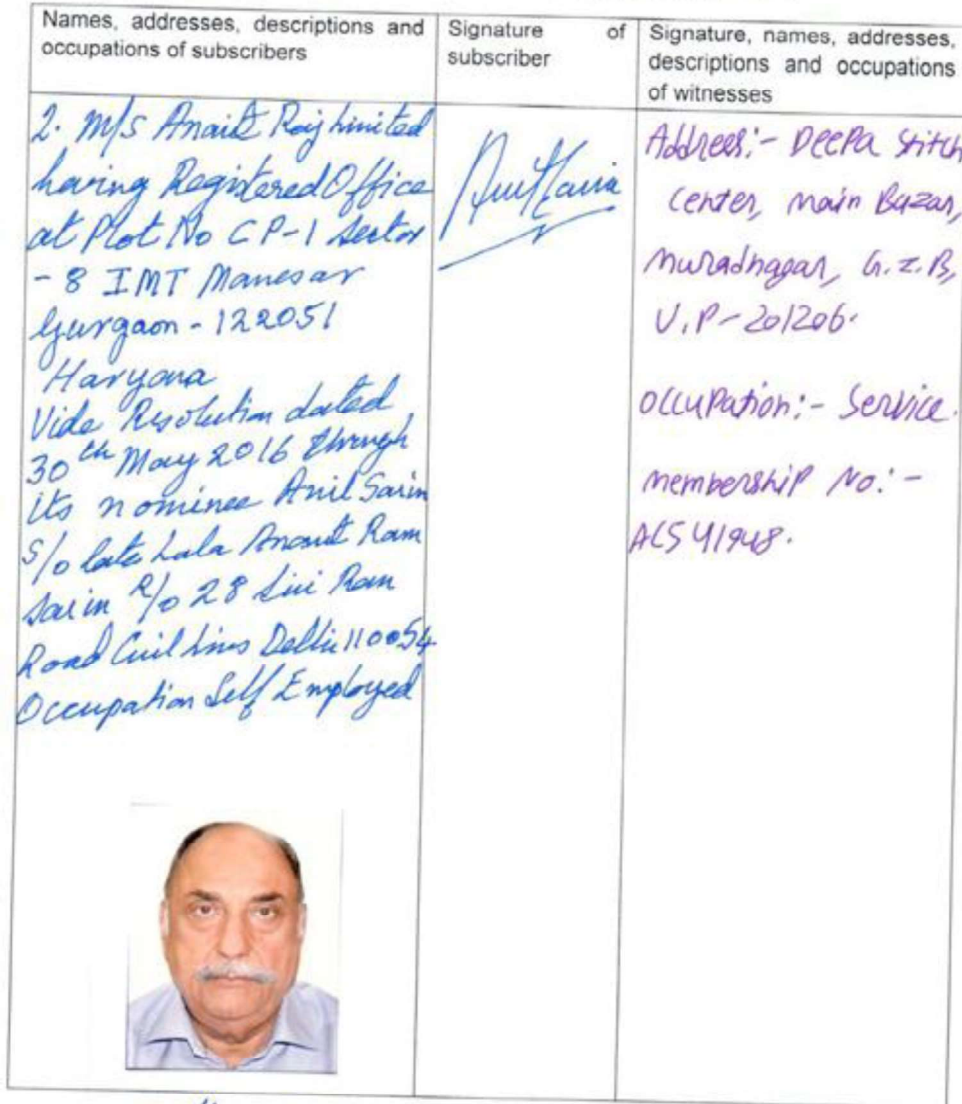 Names, addresses, descriptions and
occupations of subscribers
Signature of
subscriber
Signature, names, addresses,
descriptions and occupations
of witnesses
2. M/s Anant Raj Limited
having Registered Office
at Plot No CP-1 Sector
- 8 IMT Manesar
Gurgaon - 122051
Haryana
Vide Resolution dated
30th May 2016 through
its nominee Anil Sarin
S/o late Lala Anant Ram
Sarin R/o 28 Sri Ram
Road Civil Lines Delhi 110054
Occupation Self Employed
Anil Sarin
Address:- DEEPA Stitch
Center, main Bazar,
Muradnagar, G.Z.B,
U.P-201206.
Occupation:- Service.
membership No.:-
ACS 41948.